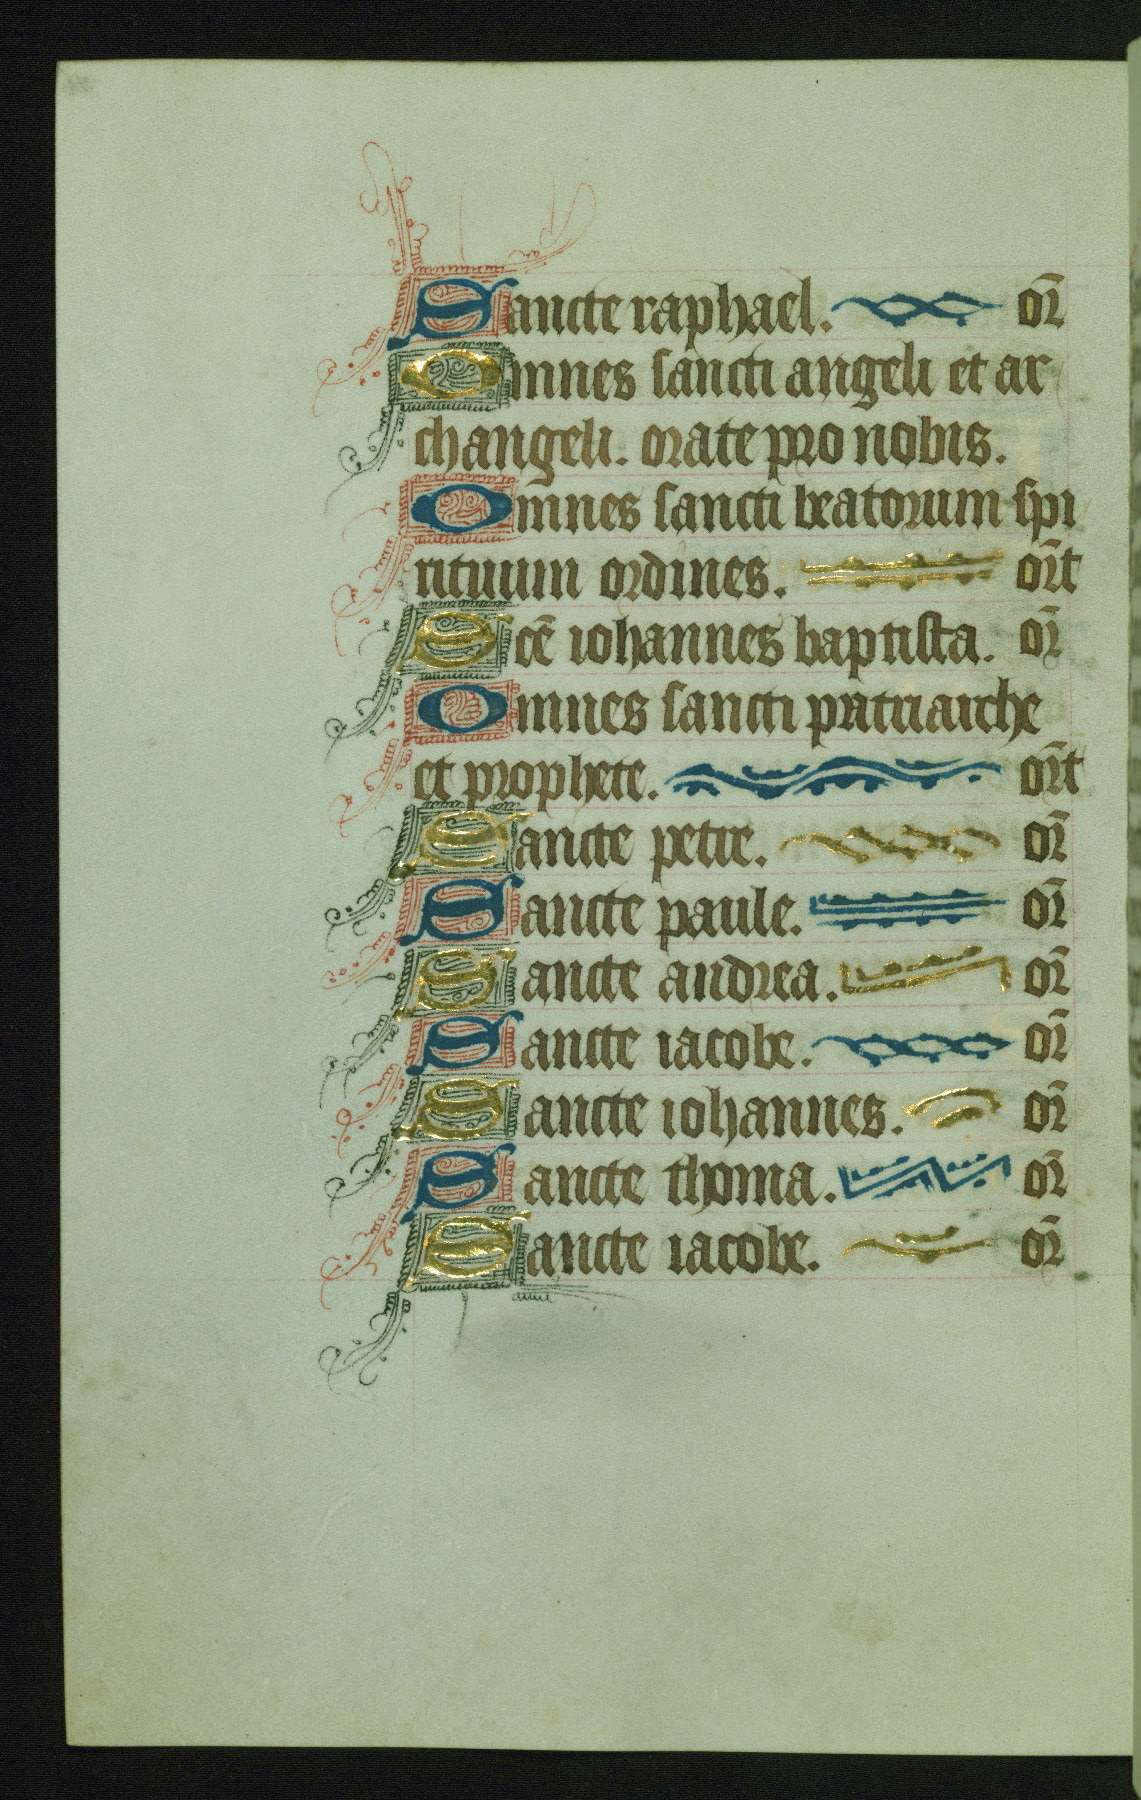 Sancte raphael. or̄
Omnes sancti angeli et ar
changeli. orate pro nobis.
Omnes sancti beatorum spi
rituum ordines. or̄t
Scē iohannes baptista. or̄
Omnes sancti patriarche
et prophete. or̄t
Sancte petre. or̄
Sancte paule. or̄
Sancte andrea. or̄
Sancte iacobe. or̄
Sancte iohannes. or̄
Sancte thoma. or̄
Sancte iacobe. or̄